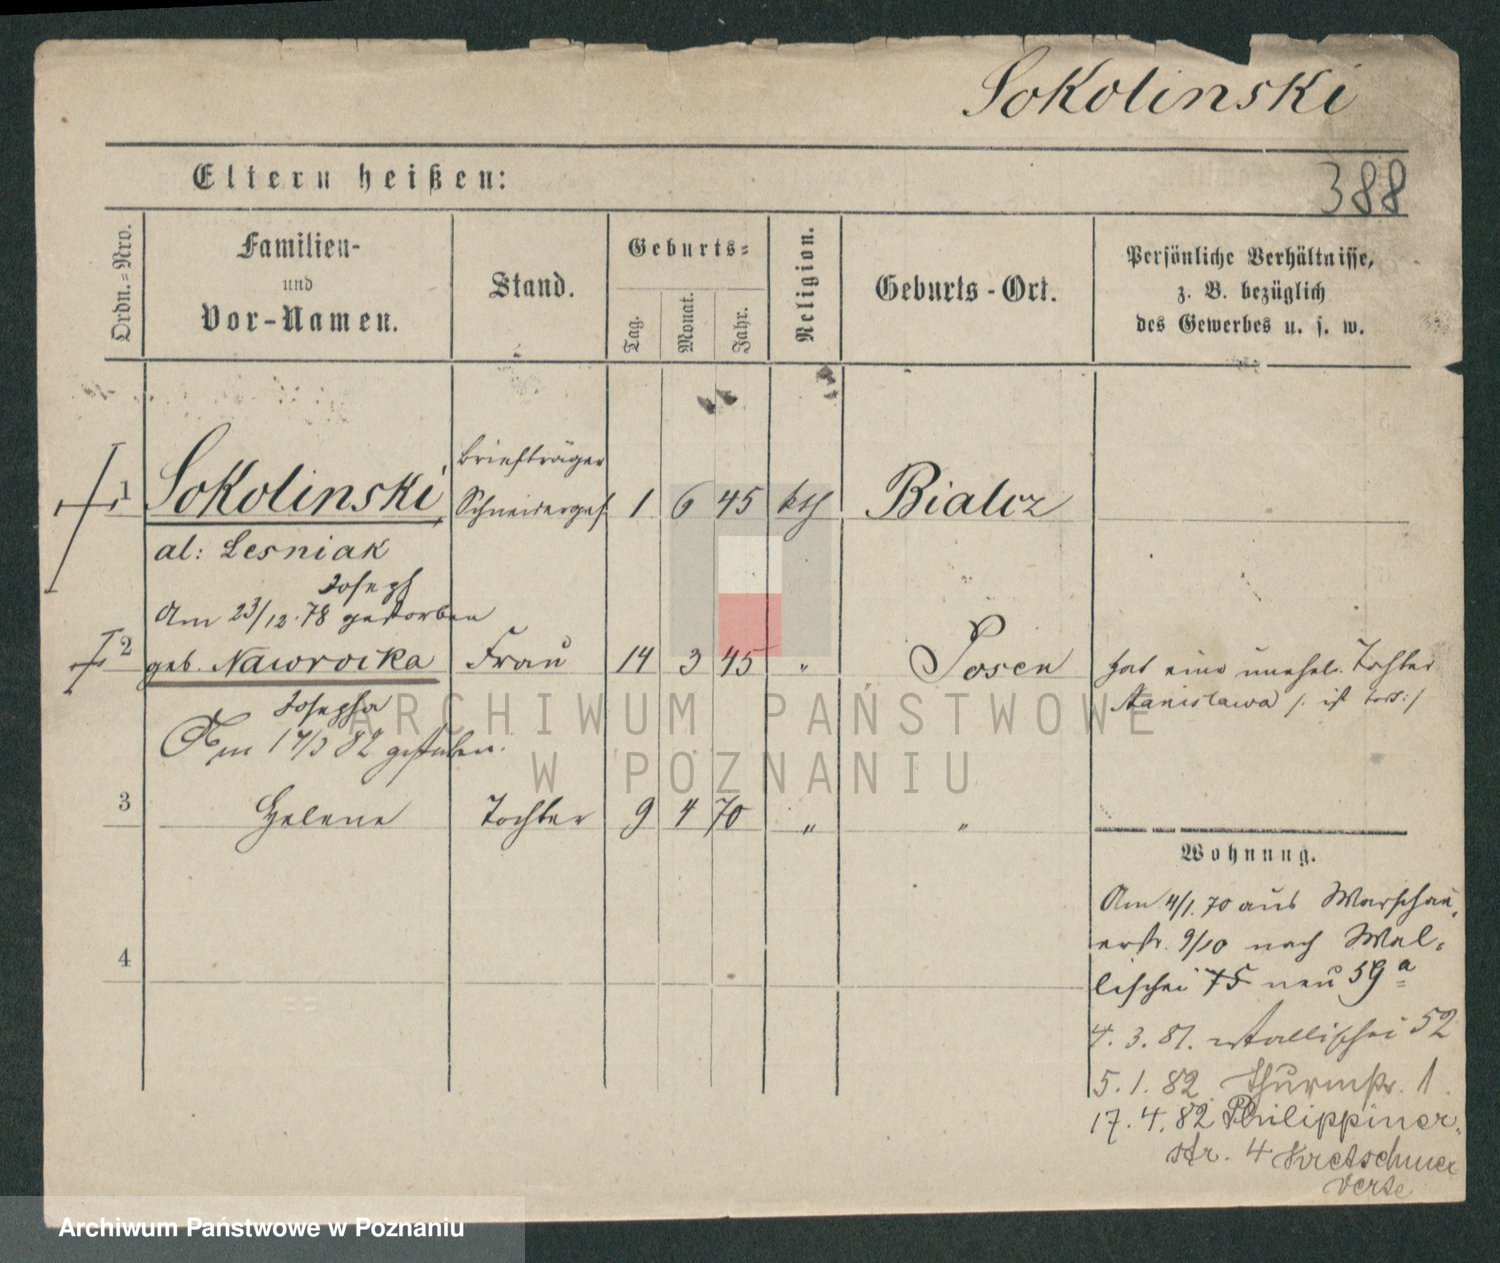 Sokolinski
Eltern heißen:
388
Ordn.-Nro.
Familien-
und
Vor-Namen.
Stand.
Geburts-
Tag.
Monat.
Jahr.
Religion.
Geburts-Ort.
Persönliche Verhältnisse,
z. B. bezüglich
des Gewerbes u. s. w.
Briefträger
1 Sokolinski Schneiderges. 1 6 45 kth Bialcz
al: Lesniak
Joseph
Am 23/12.78 gestorben
2 geb. Nawrocka Frau 14 3 45 " Posen hat eine unehel. Tochter
Stanislawa /: ist todt :/
Josepha
Am 17/3 82 gestorben.
3 Helene Tochter 9 4 70 " "
Wohnung.
4
Am 4/1. 70 aus Warschau-
erstr. 9/10 nach Wal-
lischei 75 neu 59a
4. 3. 81. Wallischei 52
5. 1. 82. Thurmstr. 1
17. 4. 82. Philippiner-
str. 4 Kretschmer
ARCHIWUM PAŃSTWOWE
W POZNANIU
Archiwum Państwowe w Poznaniu